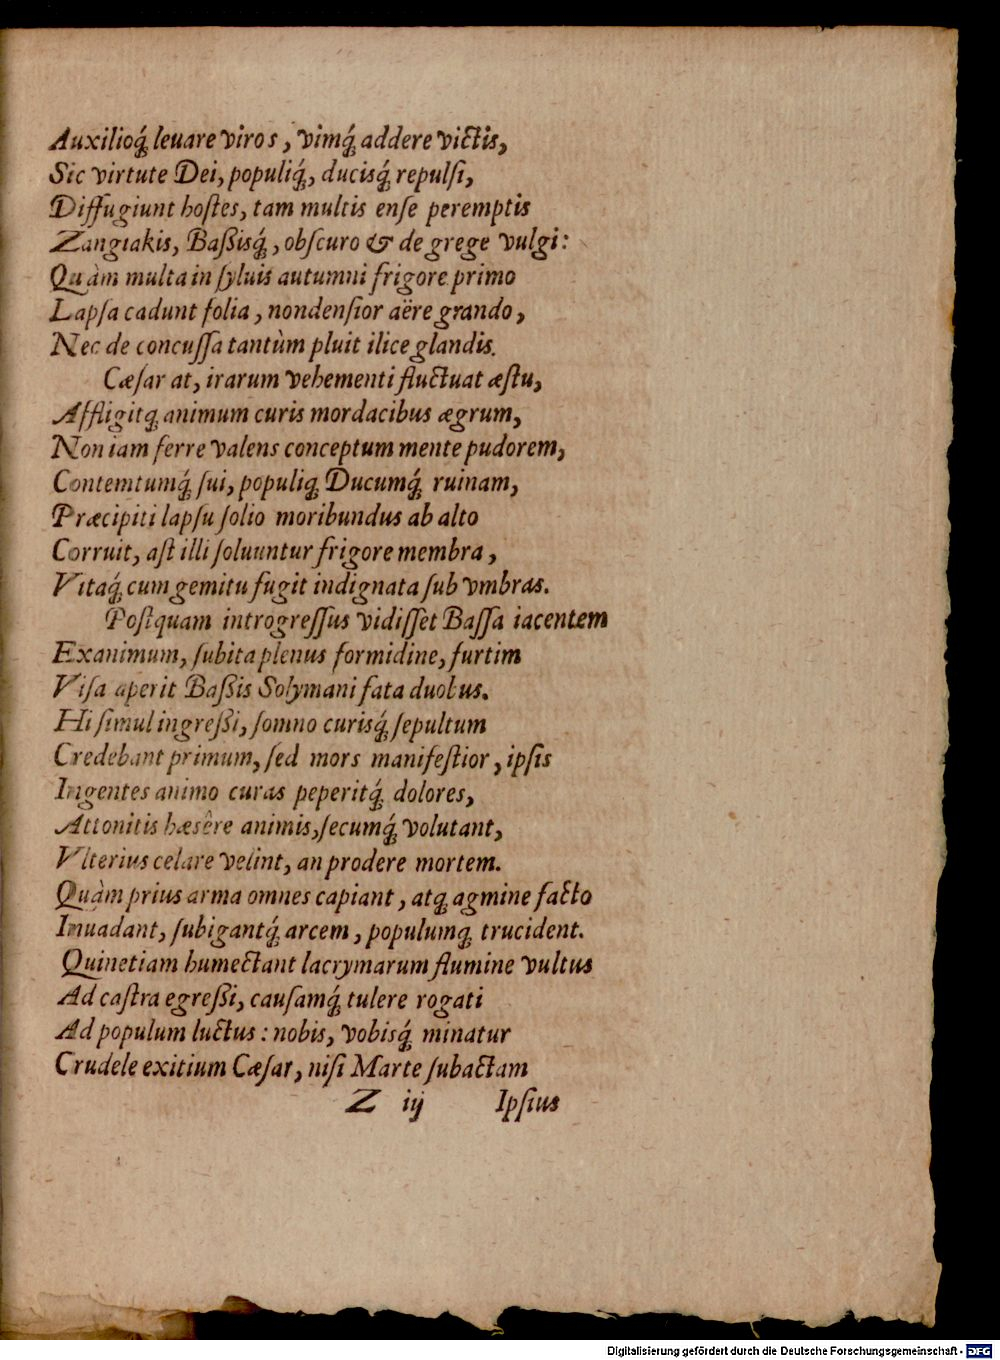 Auxilioq́; leuare viros, vimq́; addere victis,
Sic virtute Dei, populiq́;, ducisq́; repulſi,
Diffugiunt hoſtes, tam multis enſe peremptis
Zangiakis, Baßisq́;, obſcuro & de grege vulgi:
Quàm multa in ſyluis autumni frigore primo
Lapſa cadunt folia, non denſior aëre grando,
Nec de concuſſa tantùm pluit ilice glandis.
Cæſar at, irarum vehementi fluctuat æſtu,
Affligitq; animum curis mordacibus ægrum,
Non iam ferre valens conceptum mente pudorem,
Contemtumq́; ſui, populiq; Ducumq́; ruinam,
Præcipiti lapſu ſolio moribundus ab alto
Corruit, aſt illi ſoluuntur frigore membra,
Vitaq́; cum gemitu fugit indignata ſub vmbras.
Poſtquam introgreſſus vidiſſet Baſſa iacentem
Exanimum, ſubita plenus formidine, furtim
Viſa aperit Baßis Solymani fata duobus.
Hi ſimul ingreßi, ſomno curisq́; ſepultum
Credebant primum, ſed mors manifeſtior, ipſis
Ingentes animo curas peperitq́; dolores,
Attonitis hæsêre animis, ſecumq́; volutant,
Vlterius celare velint, an prodere mortem.
Quàm prius arma omnes capiant, atq; agmine facto
Inuadant, ſubigantq́; arcem, populumq; trucident.
Quinetiam humectant lacrymarum flumine vultus
Ad caſtra egreßi, cauſamq́; tulere rogati
Ad populum luctus: nobis, vobisq́; minatur
Crudele exitium Cæſar, niſi Marte ſubactam
Z iij Ipſius
Digitalisierung gefördert durch die Deutsche Forschungsgemeinschaft - DFG